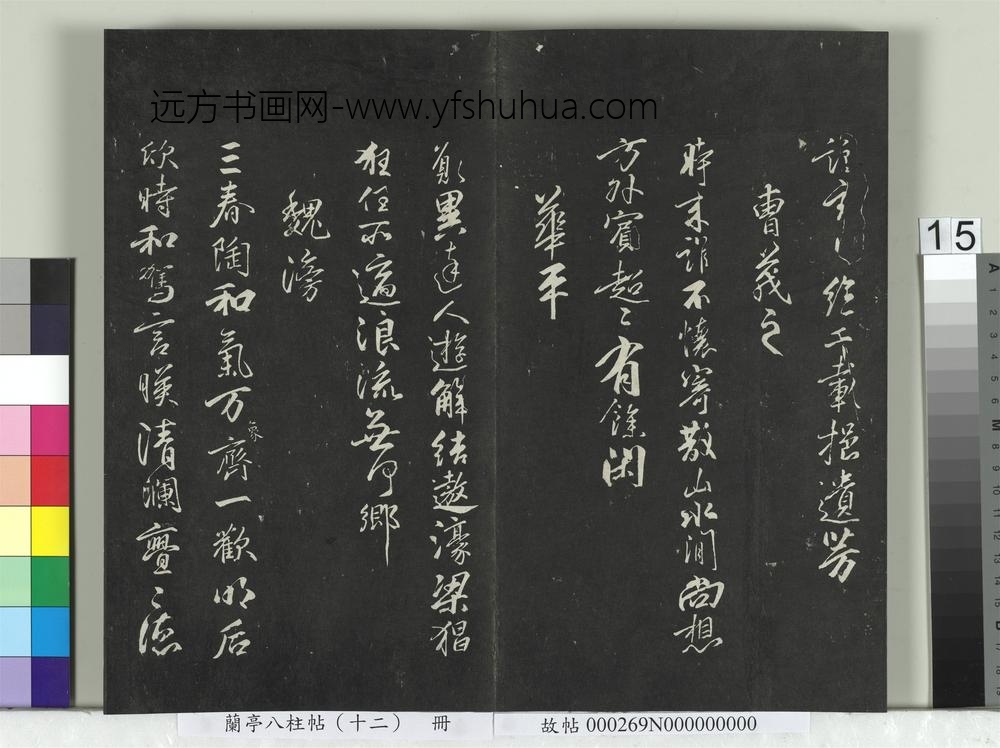 誰絶千載挹遺芳
曹茂之
時来誰不懷寄散山水間尚想
方外賓超〻有餘閑
華平
願與達人遊解結遨濠梁猖
狂任所適浪流無何鄉
魏滂
三春陶和氣万象齊一歡明后
欣時和駕言暎清瀾亹〻德
远方书画网-www.yfshuhua.com
15
蘭亭八柱帖（十二） 冊
故帖 000269N000000000